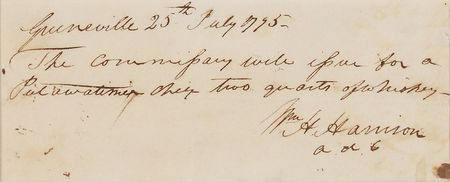 Greeneville 25th July 1795-
The Commissary will issue for a
Putawatimie cheif two quarts of whiskey-
Wm H. Harrison
a d C